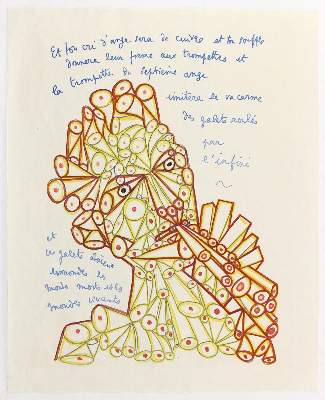 Et ton cri d'ange sera de cuivre et ton souffle
donnera leur forme aux trompettes et
la trompette du septième ange
imitera le vacarme
des galets roulés
par
l'infini
et
ces galets étaient
les
mondes morts et les
mondes vivants